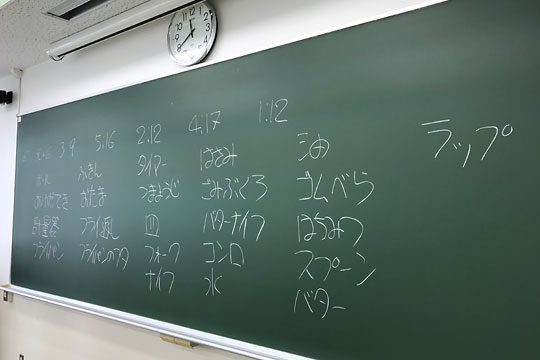 3.9 5:16 2:12 4:17 1:12
ふきん タイマー はさみ 油 ラップ
おたま つまようじ ゴミぶくろ ゴムべら
計量器 フライ返し 皿 バターナイフ はちみつ
フライパン フライパンのフタ フォーク コンロ スプーン
ナイフ 水 バター